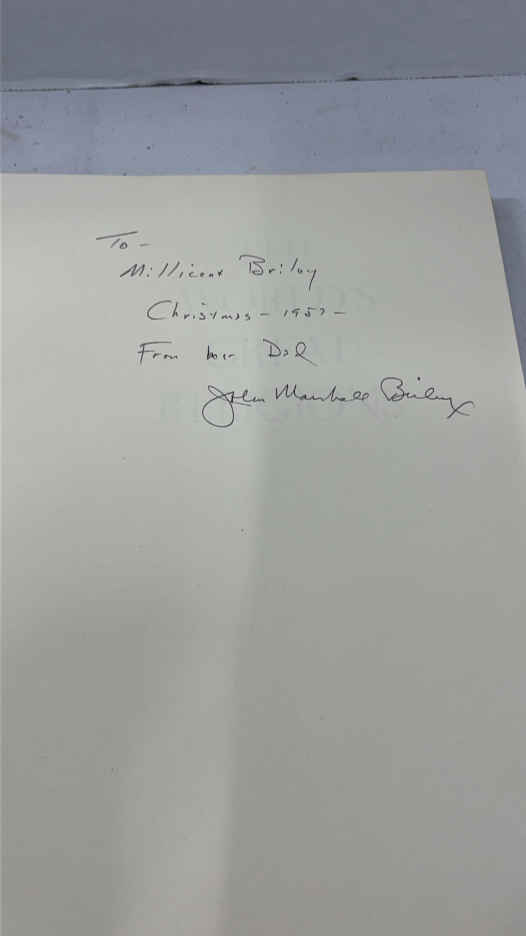 To -
Millicent Briley
Christmas - 1957 -
From her Dad
John Marshall Briley